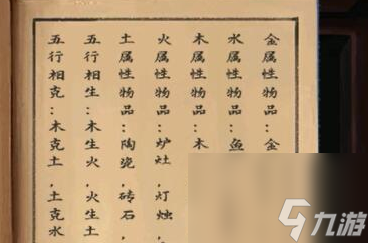 金属性物品：金
水属性物品：鱼
木属性物品：木
火属性物品：炉灶，灯烛，
土属性物品：陶瓷，砖石，
五行相生：木生火，火生土
五行相克：木克土，土克水
九游